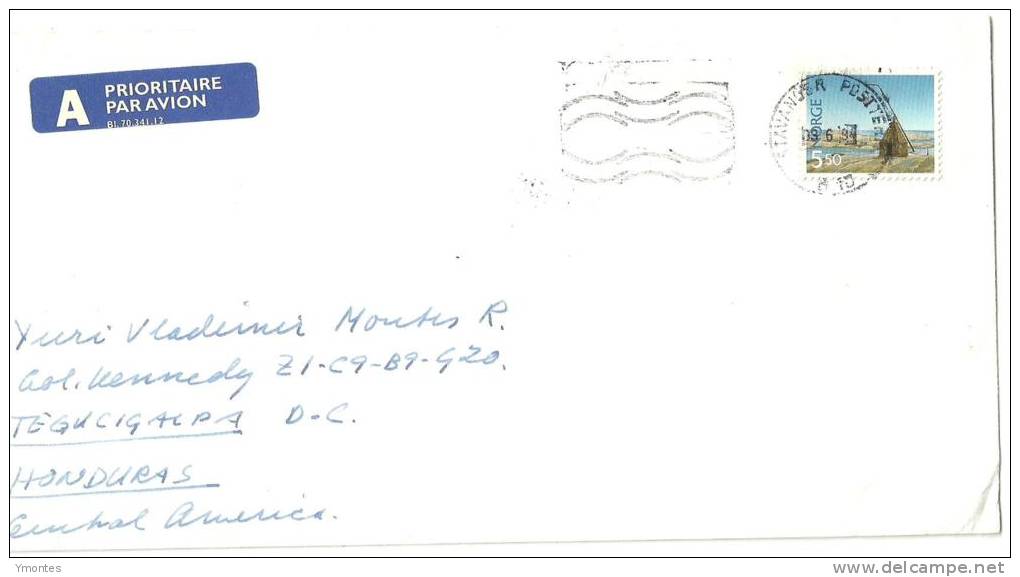 A PRIORITAIRE
PAR AVION
Bl.70.341.12
STAVANGER POSTT
NORGE
5.50
Yuri Vladimir Montes R.
Col. Kennedy Z1-C9-B9-G20.
TEGUCIGALPA D-C.
HONDURAS
Central America.
Ymontes
www.delcampe.net